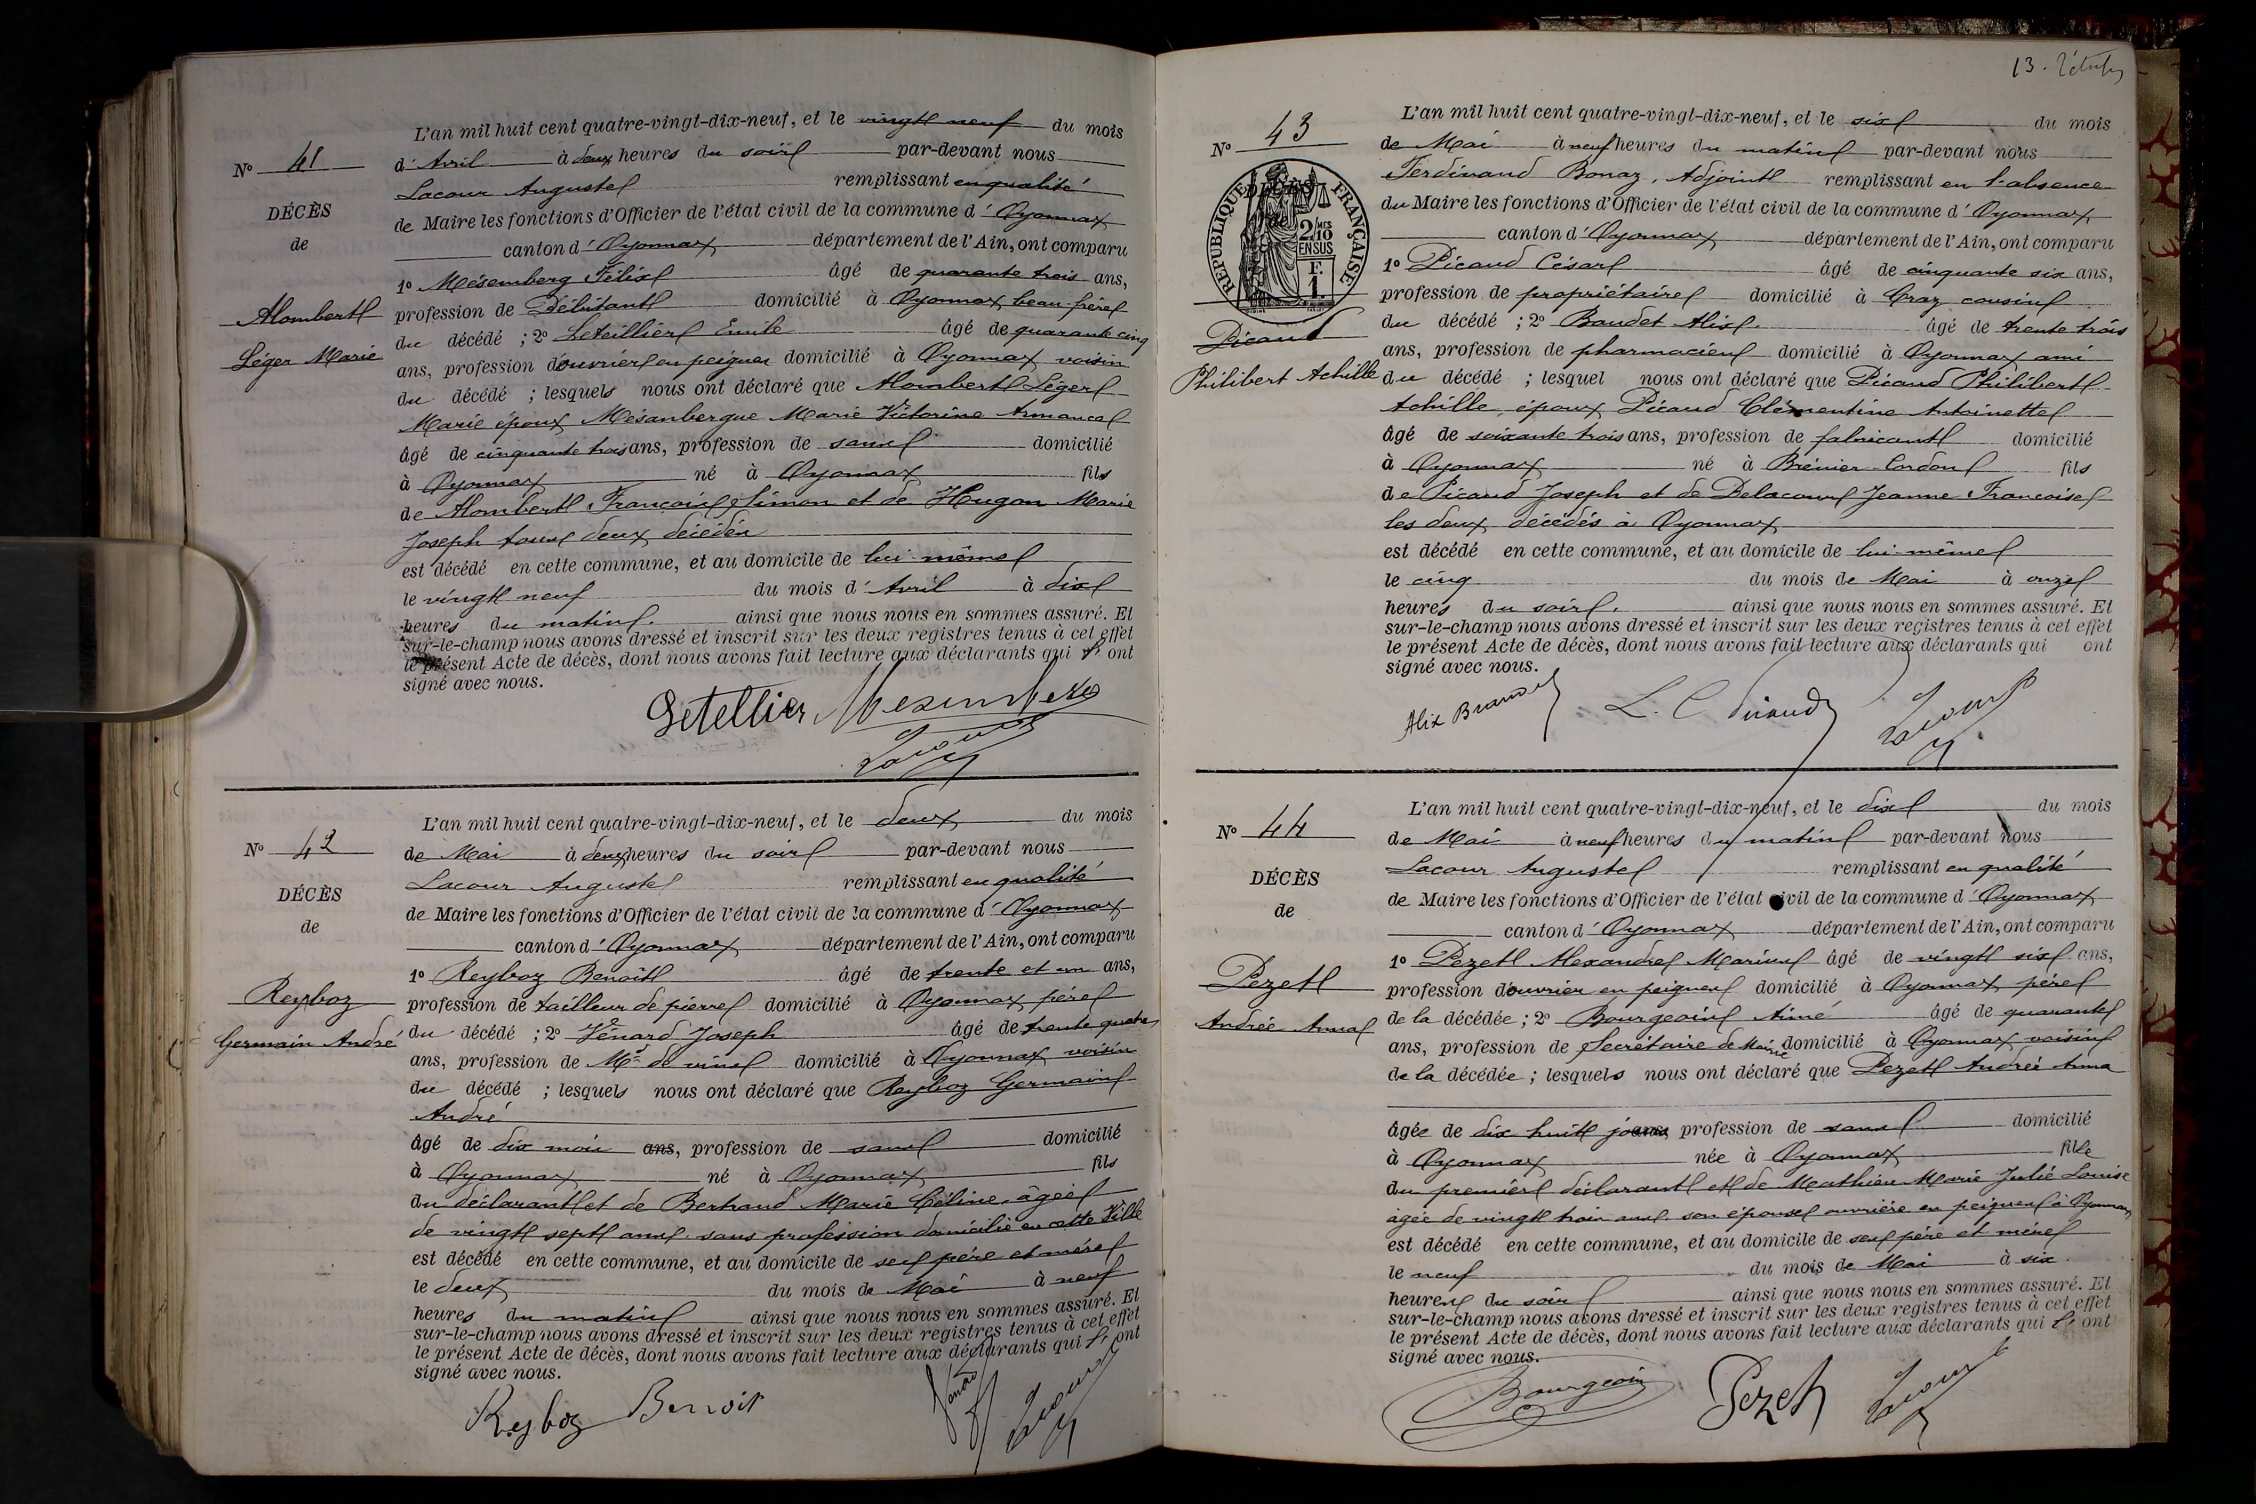 N° 41
DÉCÈS
de
Alombert
Léger Marie
L'an mil huit cent quatre-vingt-dix-neuf, et le vingt neuf du mois
d'Avril à deux heures du soir par-devant nous
Lacour Auguste remplissant en qualité
de Maire les fonctions d'Officier de l'état civil de la commune d'Oyonnax
canton d'Oyonnax département de l'Ain, ont comparu
1° Mésemberg Félix âgé de quarante trois ans,
profession de Débitant domicilié à Oyonnax beau-frère
du décédé ; 2° Letellier Emile âgé de quarante cinq
ans, profession d'ouvrier en peignes domicilié à Oyonnax voisin
du décédé ; lesquels nous ont déclaré que Alombert Léger
Marie époux Mésanbergue Marie Victorine Armance
âgé de cinquante trois ans, profession de sans domicilié
à Oyonnax né à Oyonnax fils
de Alombert François Simon et de Hugon Marie
Joseph tous deux décédés
est décédé en cette commune, et au domicile de lui-même
le vingt neuf du mois d'Avril à dix
heures du matin. ainsi que nous nous en sommes assuré. Et
sur-le-champ nous avons dressé et inscrit sur les deux registres tenus à cet effet
le présent Acte de décès, dont nous avons fait lecture aux déclarants qui ont
signé avec nous.
Letellier Mesemberg
Lacour
N° 42
DÉCÈS
de
Reyboz
Germain André
L'an mil huit cent quatre-vingt-dix-neuf, et le deux du mois
de Mai à deux heures du soir par-devant nous
Lacour Auguste remplissant en qualité
de Maire les fonctions d'Officier de l'état civil de la commune d'Oyonnax
canton d'Oyonnax département de l'Ain, ont comparu
1° Reyboz Benoît âgé de trente et un ans,
profession de tailleur de pierre domicilié à Oyonnax père
du décédé ; 2° Vénard Joseph âgé de trente quatre
ans, profession de Md de vins domicilié à Oyonnax voisin
du décédé ; lesquels nous ont déclaré que Reyboz Germain
André
âgé de dix mois ans, profession de sans domicilié
à Oyonnax né à Oyonnax fils
du déclarant et de Bertrand Marie Céline âgée
de vingt sept ans, sans profession domicilié en cette Ville
est décédé en cette commune, et au domicile de ses père et mère
le deux du mois de Mai à neuf
heures du matin ainsi que nous nous en sommes assuré. Et
sur-le-champ nous avons dressé et inscrit sur les deux registres tenus à cet effet
le présent Acte de décès, dont nous avons fait lecture aux déclarants qui ont
signé avec nous.
Reyboz Benoit Vénard Lacour
13.
N° 43
DÉCÈS
de
RÉPUBLIQUE FRANÇAISE
2/10 EN SUS
F. 1.
Picaud
Philibert Achille
L'an mil huit cent quatre-vingt-dix-neuf, et le six du mois
de Mai à neuf heures du matin par-devant nous
Ferdinand Bonaz, Adjoint remplissant en l'absence
du Maire les fonctions d'Officier de l'état civil de la commune d'Oyonnax
canton d'Oyonnax département de l'Ain, ont comparu
1° Picaud César âgé de cinquante six ans,
profession de propriétaire domicilié à Craz cousin
du décédé ; 2° Baudet Alix. âgé de trente trois
ans, profession de pharmacien domicilié à Oyonnax ami
du décédé ; lesquel nous ont déclaré que Picaud Philibert
Achille, époux Picaud Clémentine Antoinette
âgé de soixante trois ans, profession de fabricant domicilié
à Oyonnax né à Brénier-Cordon fils
de Picaud Joseph et de Delacour Jeanne Françoise
les deux décédés à Oyonnax
est décédé en cette commune, et au domicile de lui-même
le cinq du mois de Mai à onze
heures du soir. ainsi que nous nous en sommes assuré. Et
sur-le-champ nous avons dressé et inscrit sur les deux registres tenus à cet effet
le présent Acte de décès, dont nous avons fait lecture aux déclarants qui ont
signé avec nous.
Alix L. C Picaud Lacour
N° 44
DÉCÈS
de
Pezet
Andrée Anna
L'an mil huit cent quatre-vingt-dix-neuf, et le dix du mois
de Mai à neuf heures du matin par-devant nous
Lacour Auguste remplissant en qualité
de Maire les fonctions d'Officier de l'état civil de la commune d'Oyonnax
canton d'Oyonnax département de l'Ain, ont comparu
1° Pezet Alexandre Marius âgé de vingt six ans,
profession d'ouvrier en peignes domicilié à Oyonnax père
de la décédée ; 2° Bourgeois Aimé âgé de quarante
ans, profession de Secrétaire de Mairie domicilié à Oyonnax voisin
de la décédée ; lesquels nous ont déclaré que Pezet Andrée Anna
âgée de dix huit jours ans, profession de sans domicilié
à Oyonnax née à Oyonnax fille
du premier déclarant et de Mathieu Marie Julie Louise
âgée de vingt trois ans, son épouse ouvrière en peignes à Oyonnax
est décédé en cette commune, et au domicile de ses père et mère
le neuf du mois de Mai à six
heures du soir ainsi que nous nous en sommes assuré. Et
sur-le-champ nous avons dressé et inscrit sur les deux registres tenus à cet effet
le présent Acte de décès, dont nous avons fait lecture aux déclarants qui ont
signé avec nous.
Bourgeois Pezet Lacour